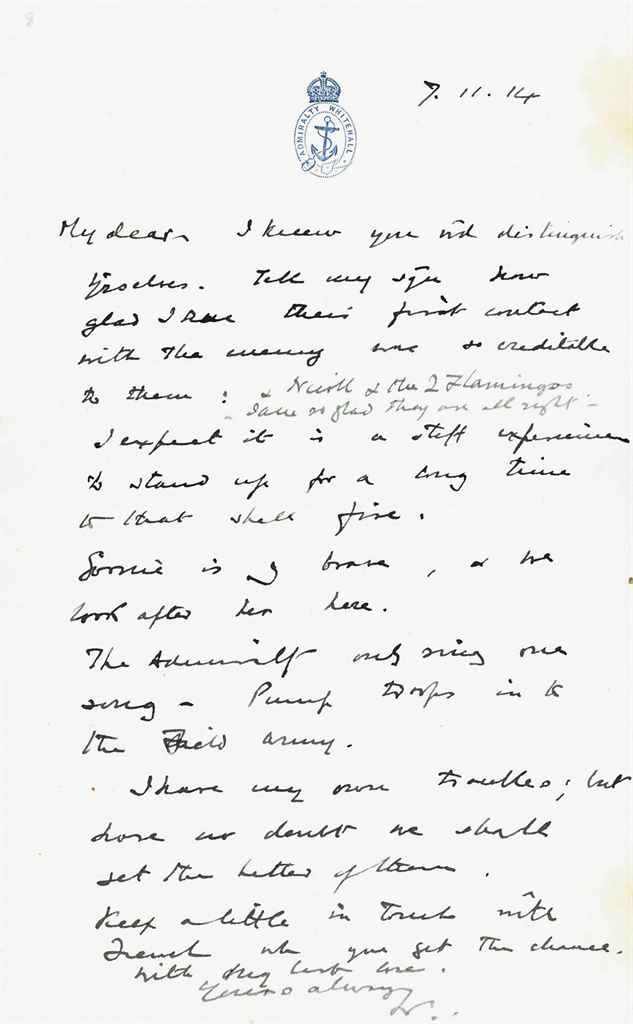 8
7. 11. 14
ADMIRALTY WHITEHALL
My dear I knew you wd distinguish
yrselves. Tell my sqn how
glad I am their first contact
with the enemy was so creditable
to them: & the 2 Flamingos
I am so glad they are all right -
I expect it is a stiff experience
to stand up for a long time
to that shell fire.
Goonie is vy brave, & we
look after her here.
The Admiralty only sing one
song - Pump troops in to
the Field army.
I have my own troubles; but
have no doubt we shall
get the better of them.
Keep a little in touch with
French wh you get the chance.
With my best love.
Yours always
W.